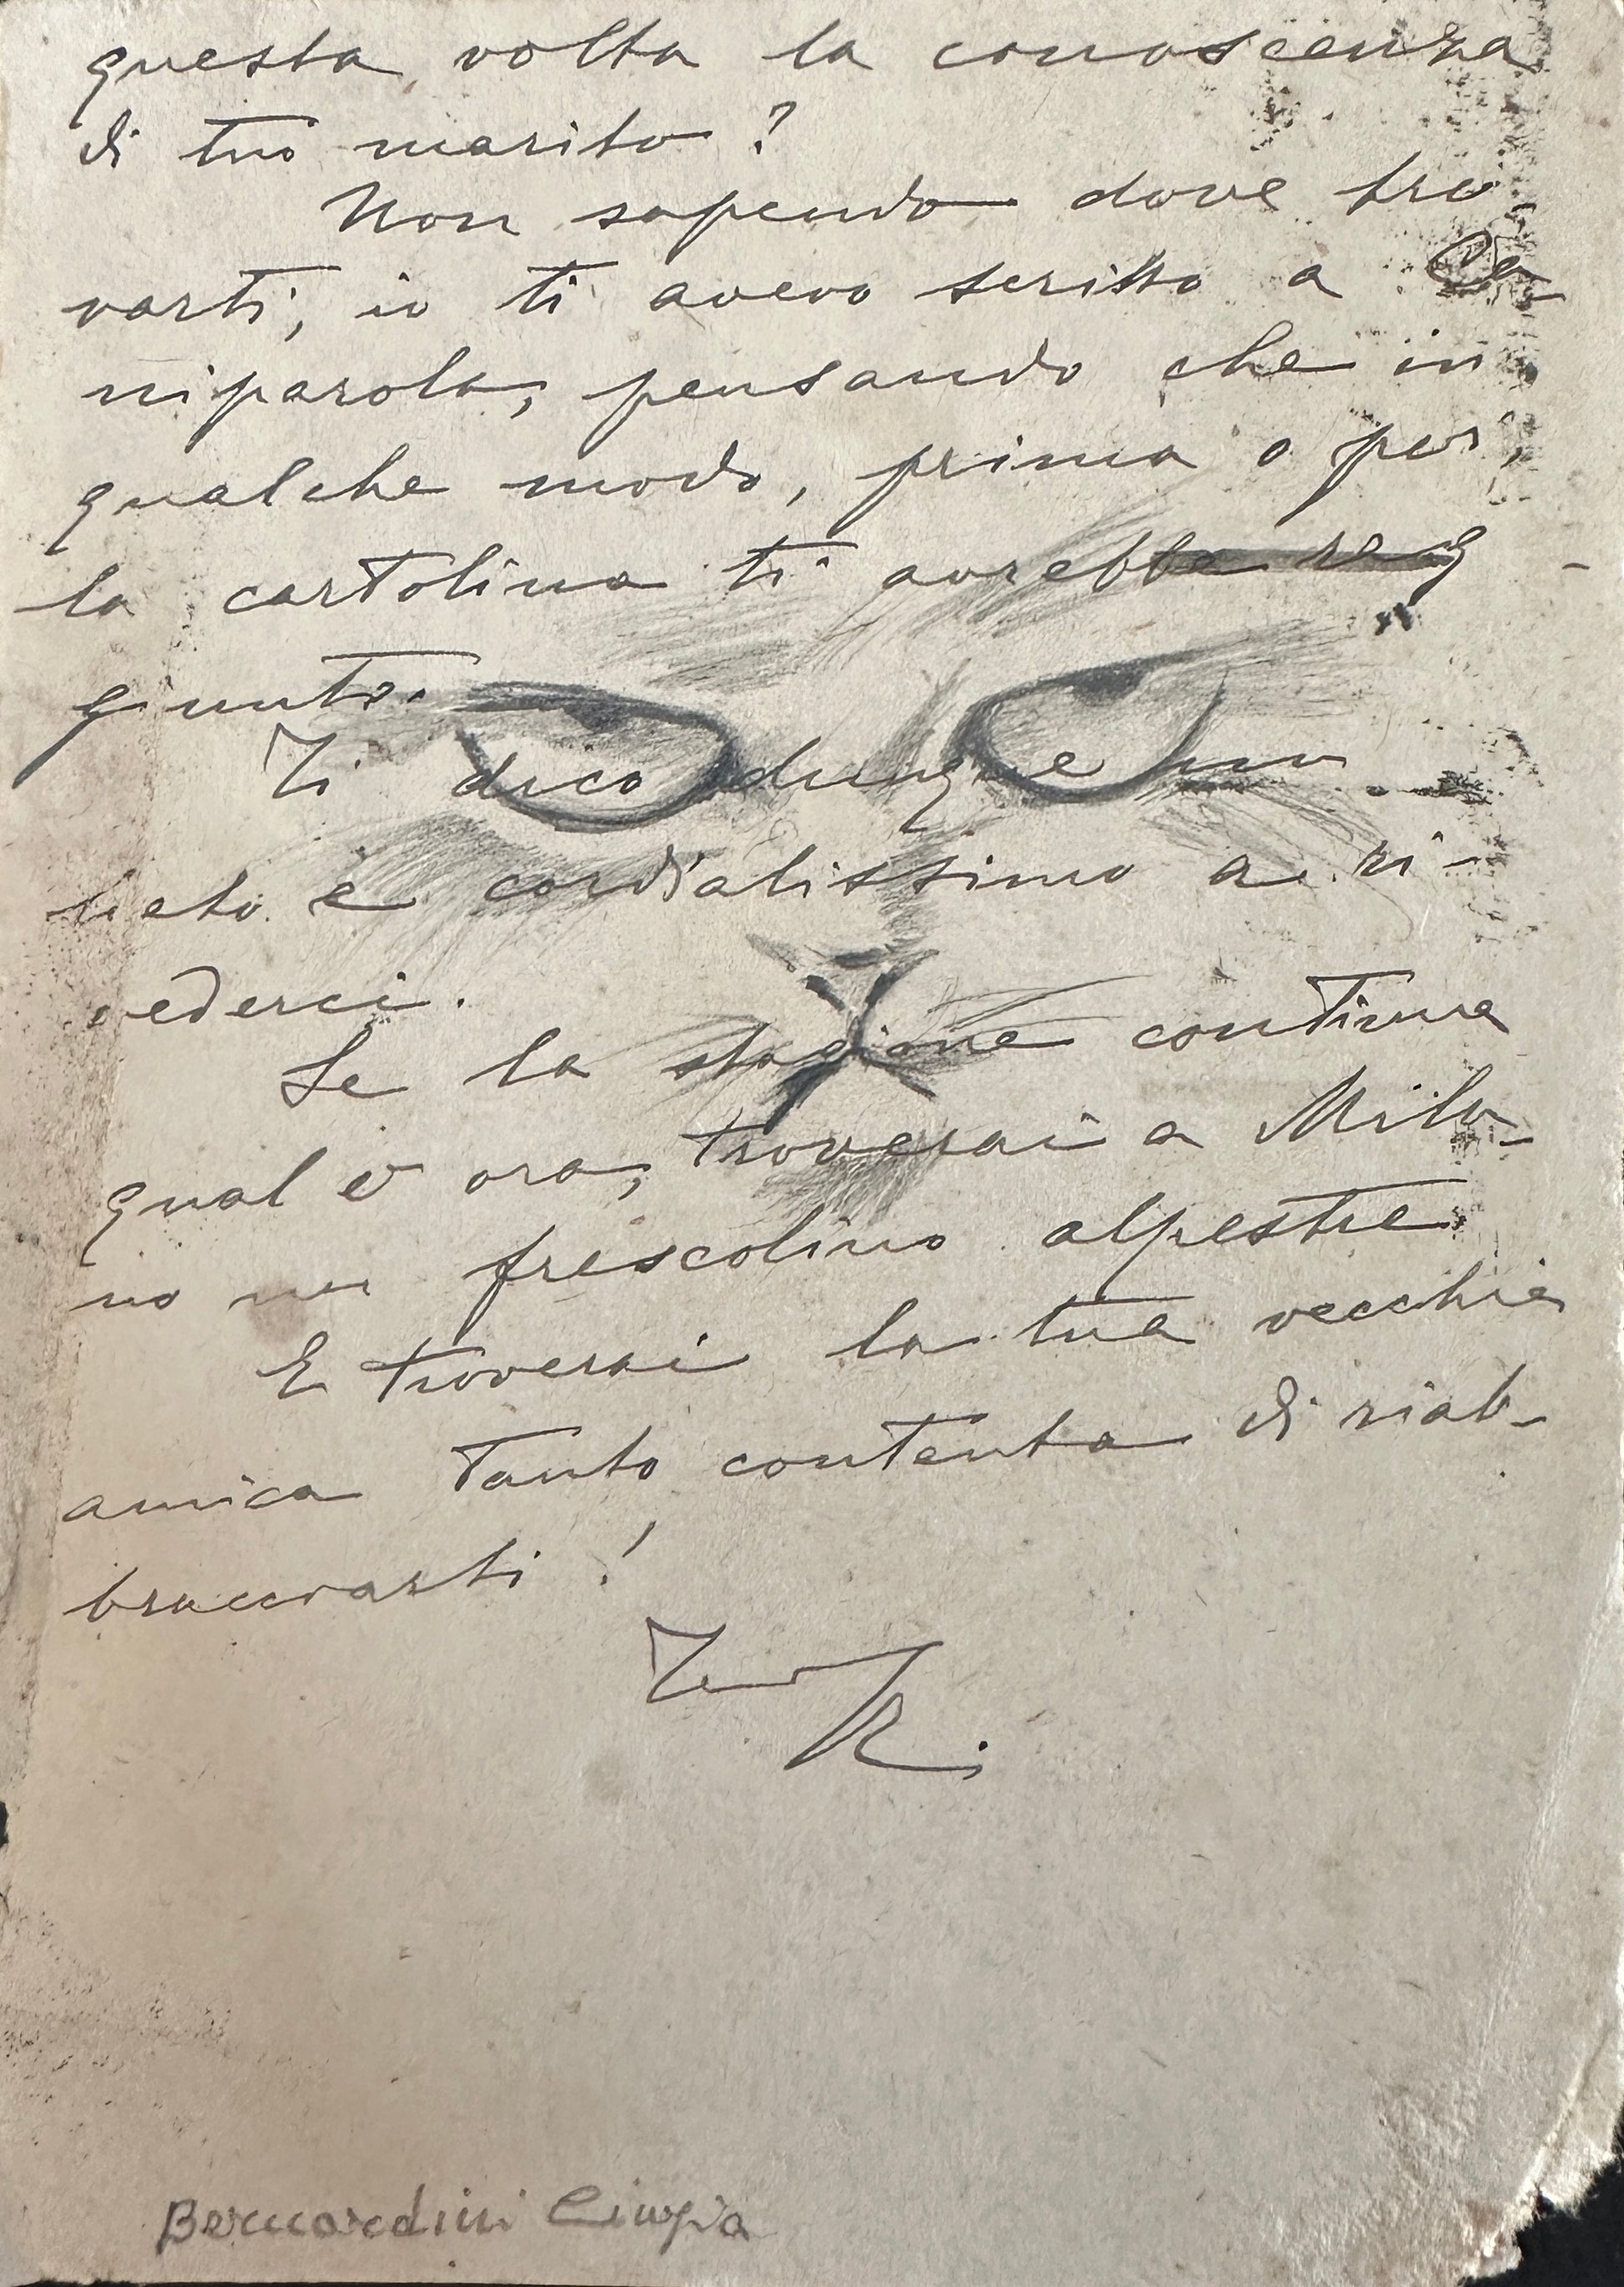 questa volta la conoscenza
di tuo marito?
Non sapendo dove tro-
varti, io ti avevo scritto a Ca-
niparola, pensando che in
qualche modo, prima o poi,
la cartolina ti avrebbe rag-
giunto.
Ti dico dunque un
lieto e cordialissimo a ri-
vederci.
Se la stagione continua
qual è ora, troverai a Mila-
no un frescolino alpestre
E troverai la tua vecchia
amica tanto contenta di riab-
bracciarti!
R.
Bernardini